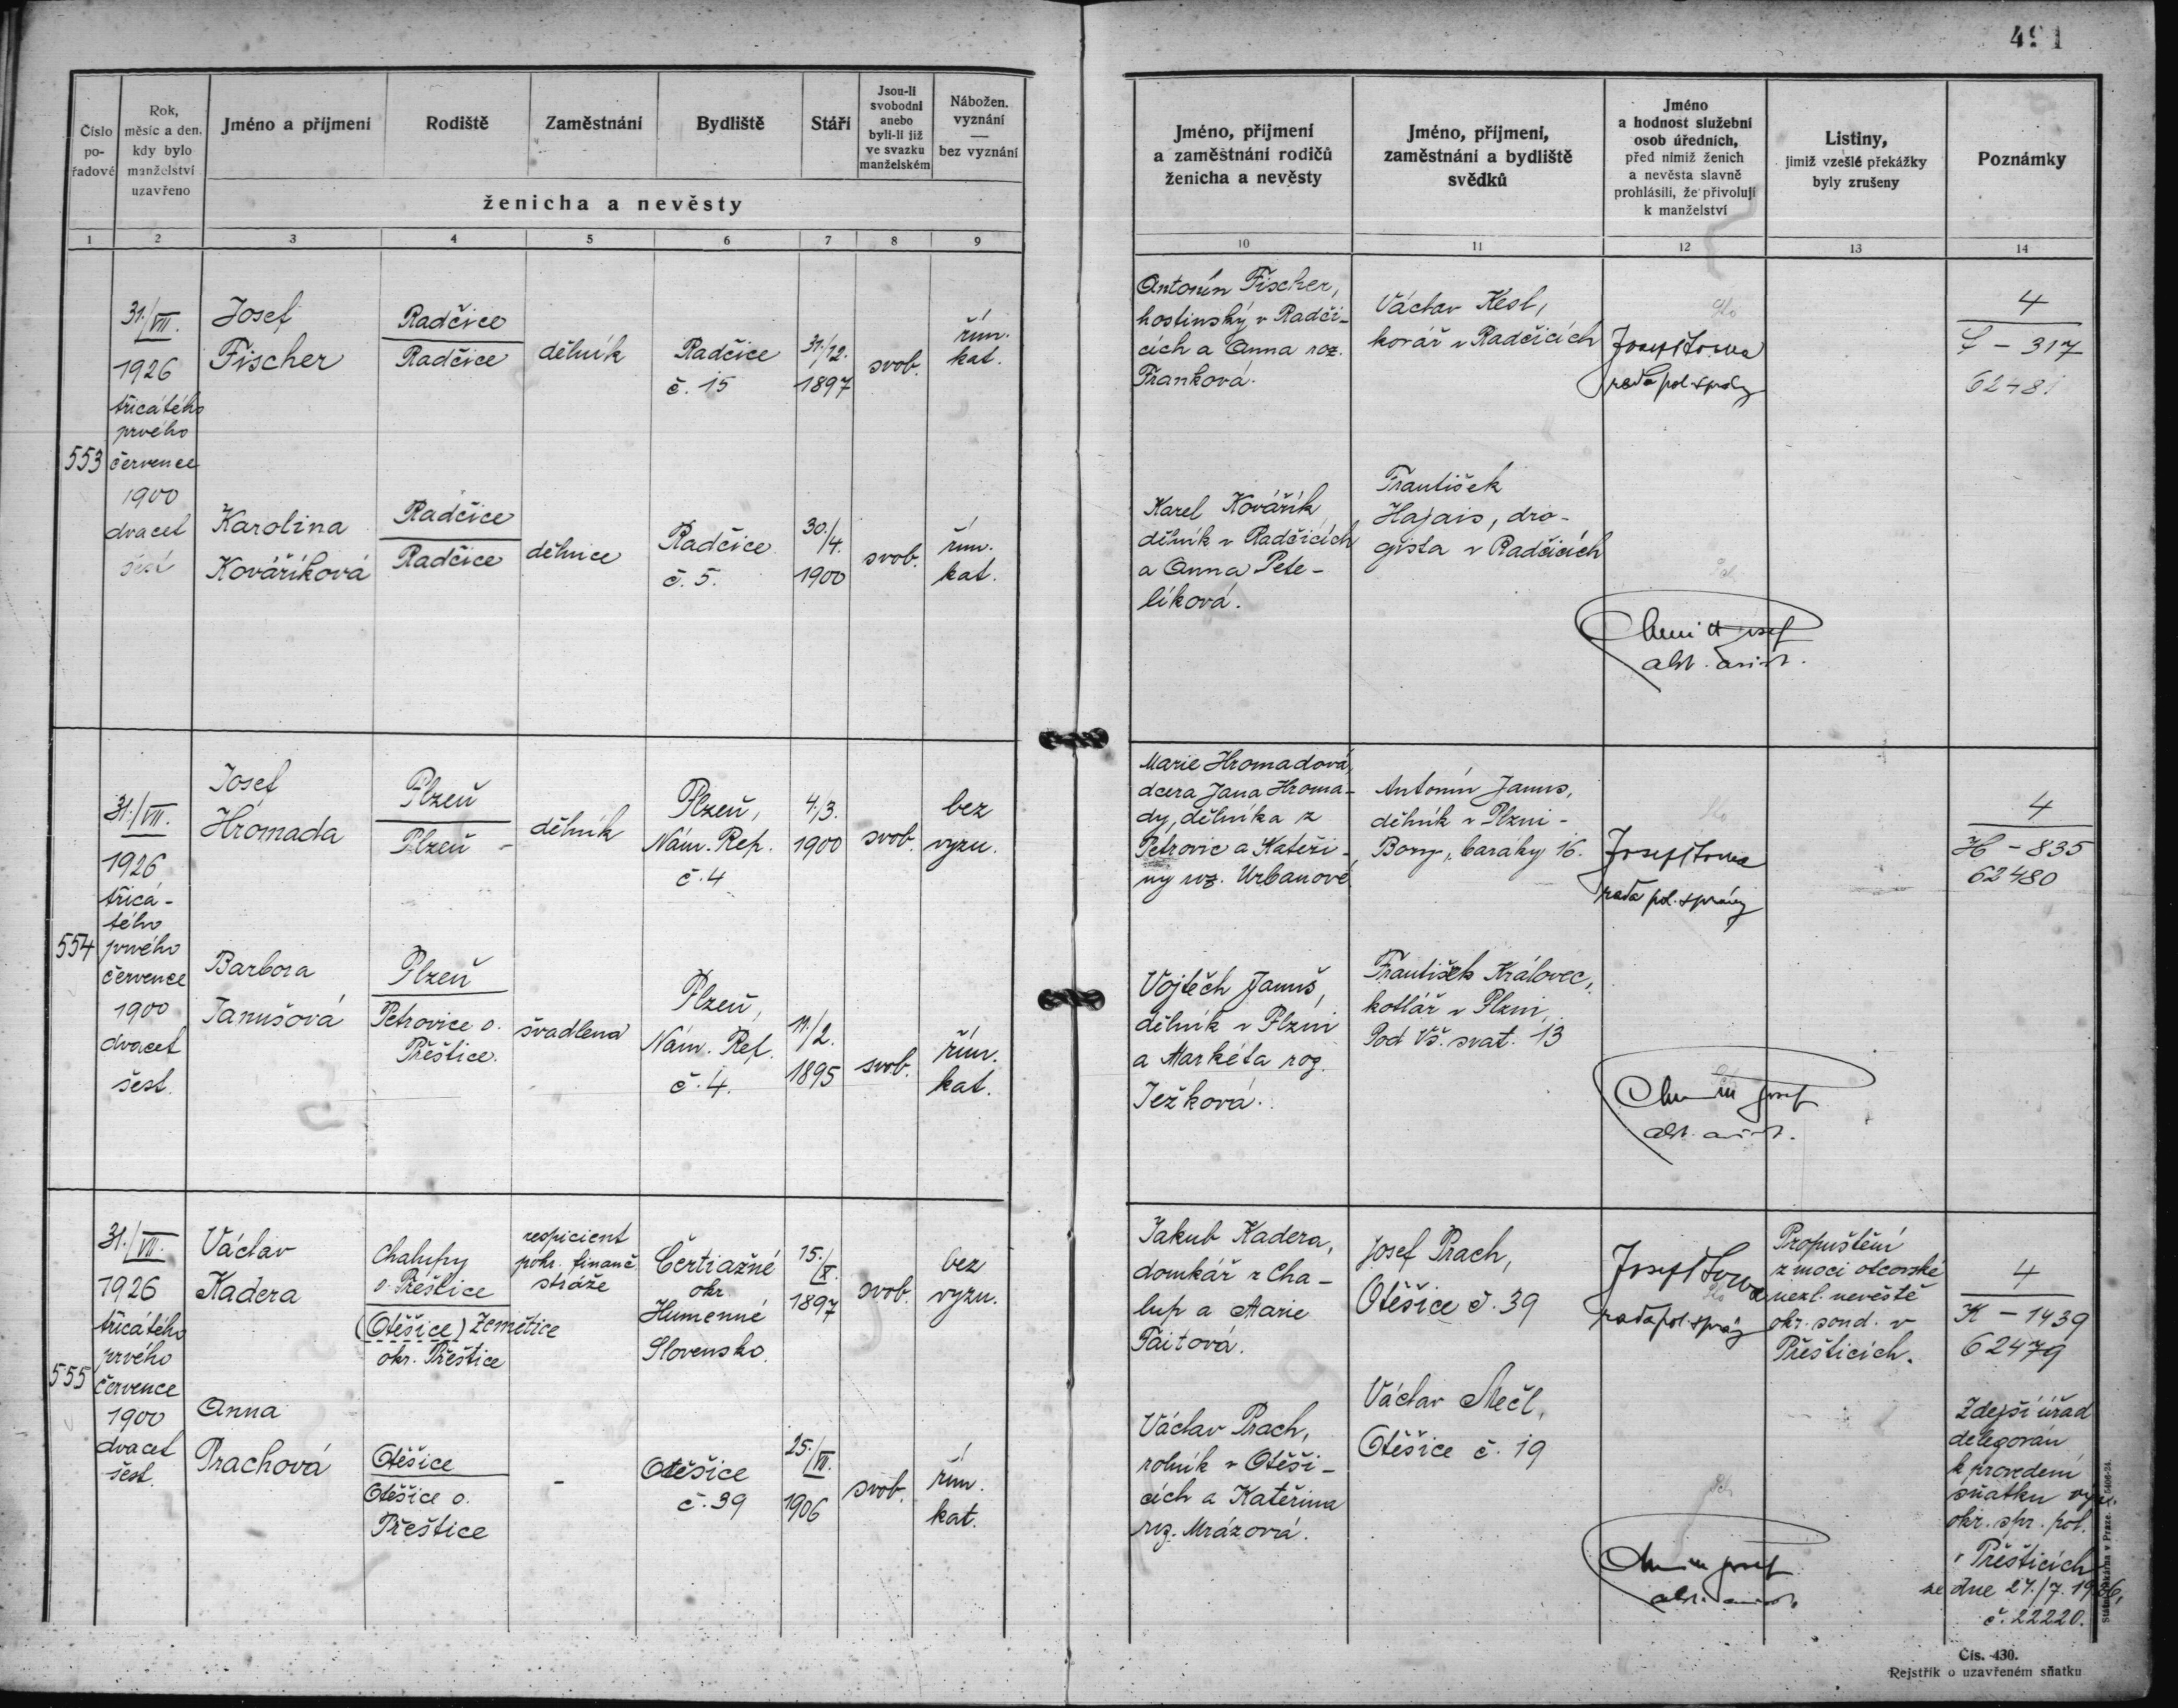 491
Číslo
po-
řadové
Rok,
měsíc a den,
kdy bylo
manželství
uzavřeno
Jméno a příjmení
Rodiště
Zaměstnání
Bydliště
Stáří
Jsou-li
svobodni
anebo
byli-li již
ve svazku
manželském
Nábožen.
vyznání
—
bez vyznání
ženicha a nevěsty
1 2 3 4 5 6 7 8 9
Jméno, příjmení
a zaměstnání rodičů
ženicha a nevěsty
Jméno, příjmení,
zaměstnání a bydliště
svědků
Jméno
a hodnost služební
osob úředních,
před nimiž ženich
a nevěsta slavně
prohlásili, že přivolují
k manželství
Listiny,
jimiž vzešlé překážky
byly zrušeny
Poznámky
10 11 12 13 14
553
31./VII.
1926
třicátého
prvého
července
1900
dvacet
šest
Josef
Fischer
Radčice
Radčice
dělník
Radčice
č. 15
31./12.
1897
svob.
řím.
kat.
Karolina
Kováříková
Radčice
Radčice
dělnice
Radčice
č. 5.
30./4.
1900
svob.
řím.
kat.
Antonín Fischer,
hostinský v Radči-
cích a Anna roz.
Franková.
Václav Kesl,
kovář v Radčicích
Josef
rada pol. správy
4
317
6248
Karel Kovářík
dělník v Radčicích
a Anna Pete-
líková.
František
Hajais, dro-
gista v Radčicích
Josef
554
31./VII.
1926
třicá-
tého
prvého
července
1900
dvacet
šest.
Josef
Hromada
Plzeň
Plzeň -
dělník
Plzeň,
Nám. Rep.
č. 4
4./3.
1900
svob.
bez
vyzn.
Barbora
Janušová
Plzeň
Petrovice o.
Přeštice.
švadlena
Plzeň,
Nám. Rep.
č. 4.
11./2.
1895
svob.
řím.
kat.
Marie Hromadová,
dcera Jana Hroma-
dy, dělníka z
Petrovic a Kateři-
ny roz. Urbanové
Antonín Janus,
dělník v Plzni -
Bory, baraky 16.
Josef
rada pol. správy
4
H - 835
62480
Vojtěch Januš,
dělník v Plzni
a Markéta roz.
Ježková.
František Královec,
kotlář v Plzni,
Pod Vš. svat. 13
Josef
555
31./VII.
1926
třicátého
prvého
července
1900
dvacet
šest.
Václav
Kadera
Chalupy
o. Přeštice
(Otěšice) Zemětice
okr. Přeštice
respicient
pohr. finanč
stráže
Čertiažné
okr
Humenné
Slovensko.
15./X.
1897
svob.
bez
vyzn.
Anna
Prachová
Otěšice
Otěšice o.
Přeštice
-
Otěšice
č. 39
25./VII.
1906
svob.
řím.
kat.
Jakub Kadera,
domkář z Cha-
lup a Marie
Paitová.
Josef Prach,
Otěšice č. 39
Josef
rada pol. správy
Propuštění
z moci otcovské
nezl. nevěstě
okr. soud. v
Přešticích.
4
K - 1439
62479
Václav Prach,
rolník v Otěši-
cích a Kateřina
roz. Mrázová.
Václav Mečl,
Otěšice č. 19
Josef
Zdejší úřad
delegován
k provedení
sňatku
okr. spr. pol.
v Přešticích
ze dne 27./7. 1926,
č. 22220.
Státní tiskárna v Praze.
Čís. 430.
Rejstřík o uzavřeném sňatku